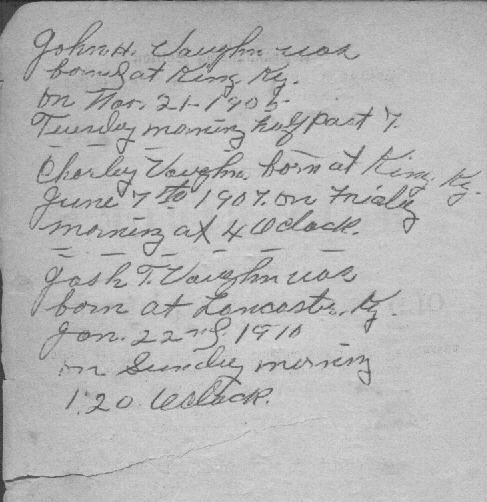 John H. Vaughn was
born at King, Ky.
on Nov. 21 - 1905.
Tuesday morning half past 7.
Charley Vaughn born at King, Ky.
June 7th 1907. on Friday
morning at 4 Oclock.
Josh T. Vaughn was
born at Lancaster, Ky.
Jan. 22nd, 1910
on Sunday morning
1:20 Oclock.